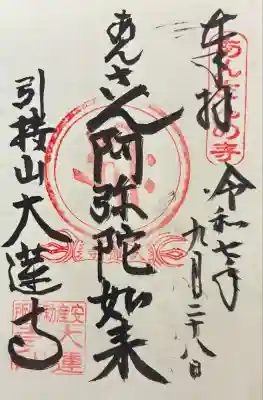 奉拝
あんさんの寺
令和七年
九月二十八日
あんさん阿弥陀如来
引接山大蓮寺